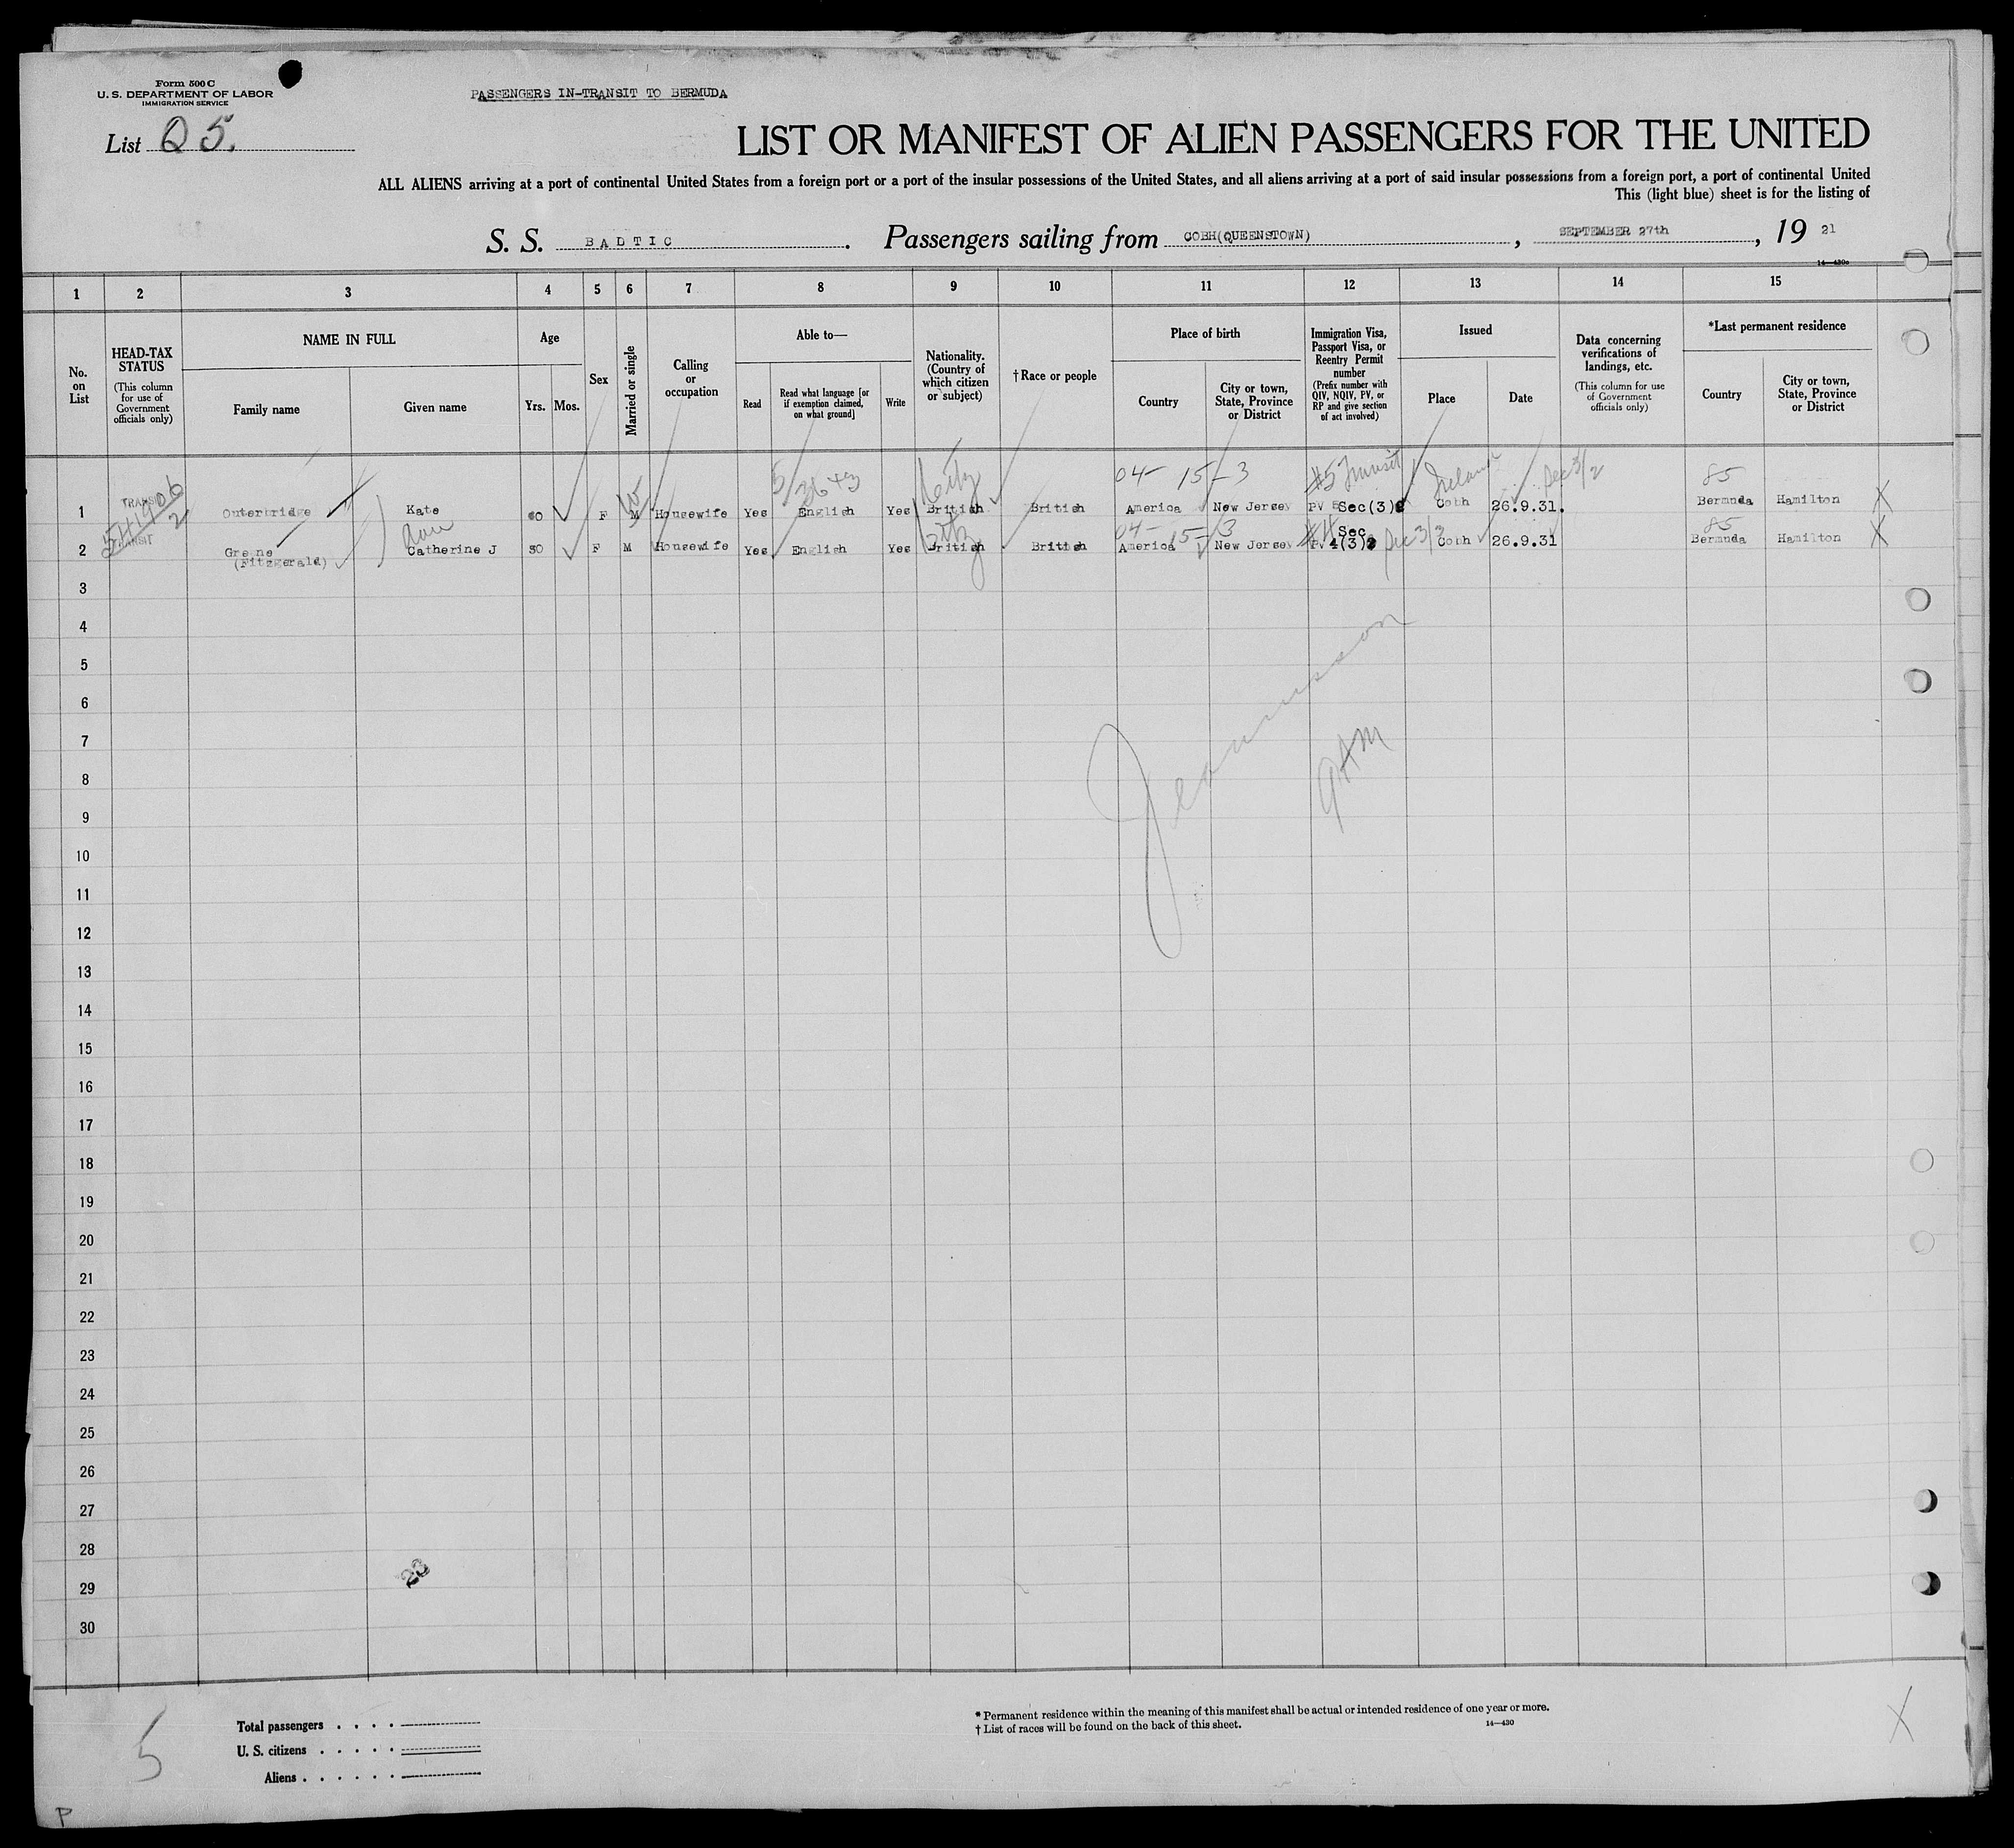 Form 500 C
U. S. DEPARTMENT OF LABOR
IMMIGRATION SERVICE
PASSENGERS IN-TRANSIT TO BERMUDA
List Q 5.
LIST OR MANIFEST OF ALIEN PASSENGERS FOR THE UNITED
ALL ALIENS arriving at a port of continental United States from a foreign port or a port of the insular possessions of the United States, and all aliens arriving at a port of said insular possessions from a foreign port, a port of continental United
This (light blue) sheet is for the listing of
S. S. BALTIC. Passengers sailing from COBH(QUEENSTOWN), SEPTEMBER 27th, 19 21
14—430c
1 2 3 4 5 6 7 8 9 10 11 12 13 14 15
No. on List
HEAD-TAX STATUS
(This column for use of Government officials only)
NAME IN FULL
Family name
Given name
Age
Yrs. Mos.
Sex
Married or single
Calling or occupation
Able to—
Read
Read what language [or if exemption claimed, on what ground]
Write
Nationality. (Country of which citizen or subject)
†Race or people
Place of birth
Country
City or town, State, Province or District
Immigration Visa, Passport Visa, or Reentry Permit number
(Prefix number with QIV, NQIV, PV, or RP and give section of act involved)
Issued
Place
Date
Data concerning verifications of landings, etc.
(This column for use of Government officials only)
*Last permanent residence
Country
City or town, State, Province or District
5 3643 04- 15-3 #5 Transit Ireland Dec 3/2 85
1 TRANSIT Outerbridge Kate F M W Housewife Yes English Yes British British America New Jersey PV Sec(3) Cobh 26.9.31. Bermuda Hamilton X
541906
2
Ann 04- 15-3 Sec 85
2 TRANSIT Greene Catherine J 30 F M Housewife Yes English Yes British British America New Jersey PV 4(3) Dec 3/2 Cobh 26.9.31 Bermuda Hamilton X
(Fitzgerald)
3
4
5
6
7
8
9
10
11
12
13
14
15
16
17
18
19
20
21
22
23
24
25
26
27
28
29
30
23
5
Total passengers
U. S. citizens
Aliens
* Permanent residence within the meaning of this manifest shall be actual or intended residence of one year or more.
† List of races will be found on the back of this sheet.
14—430
X
P